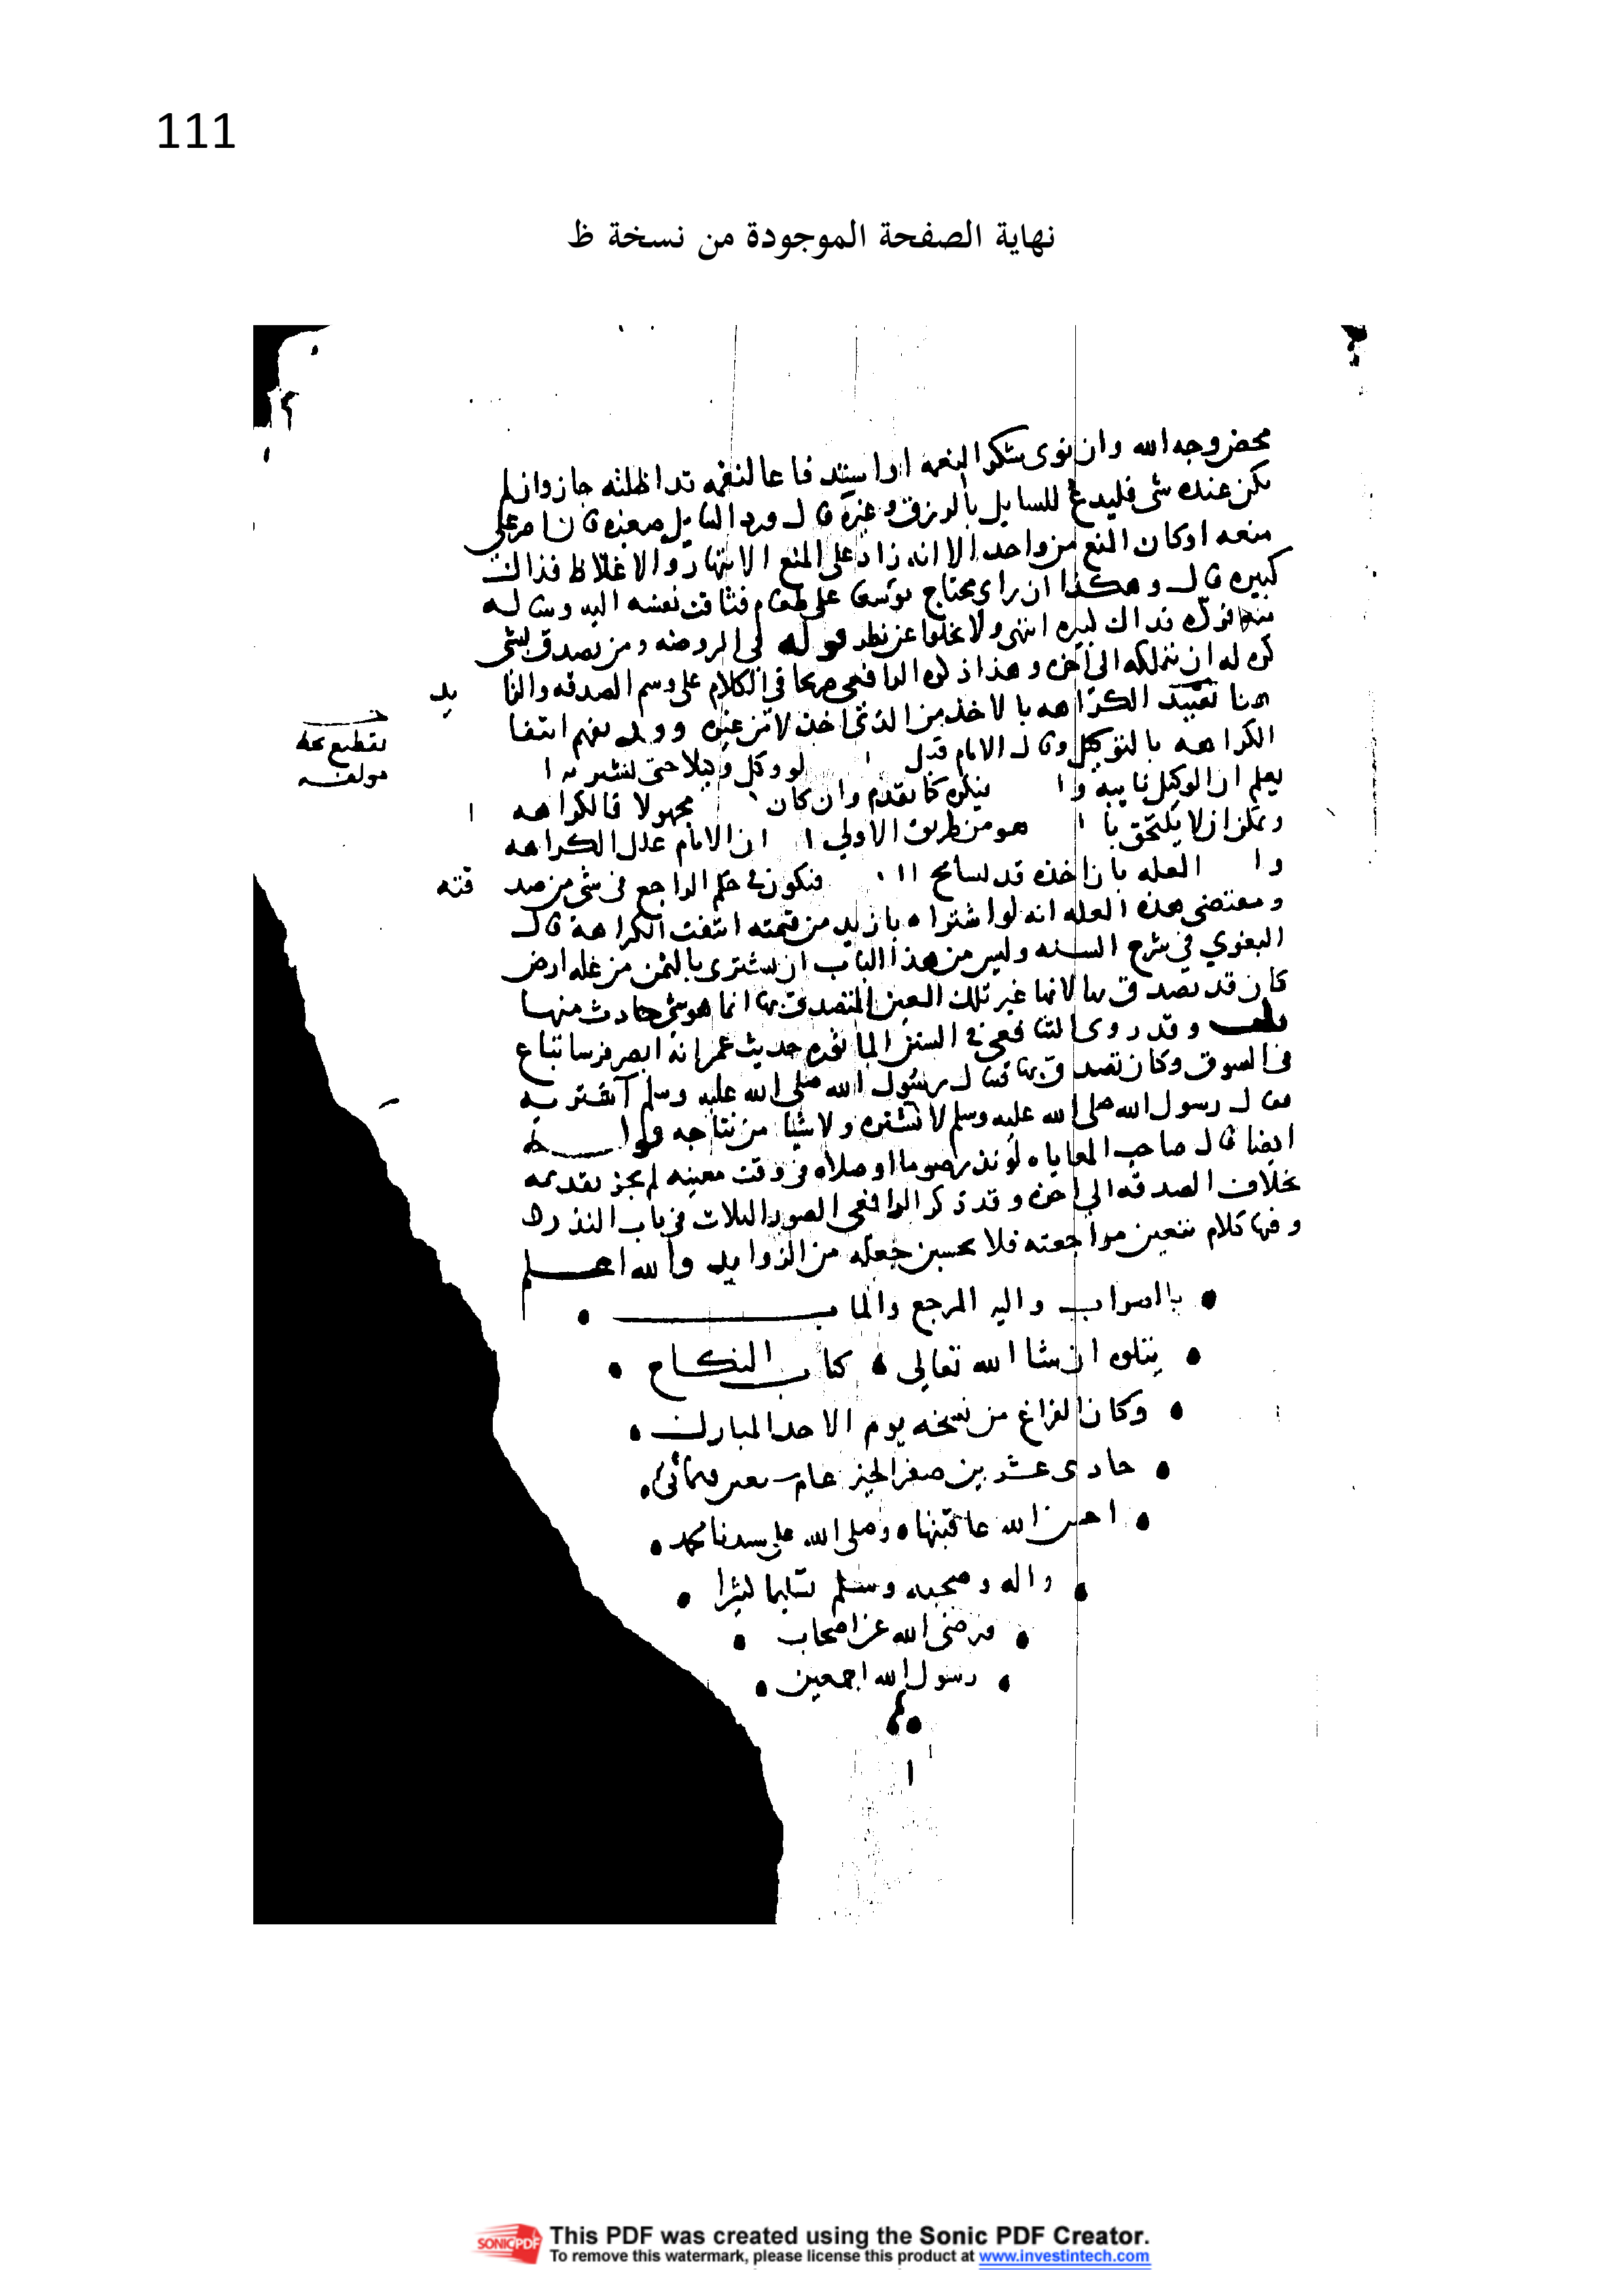 111
نهاية الصفحة الموجودة من نسخة ظ
محض وجه الله وان نوى شكر النعمه او استدفاعا لنقمه قد اظلته جاز وان لم
يكن عنده شى فليدع للسايل بالرزق وغيره قال ورد السايل صغيره فان
منعه او كان المنع من واحد الا انه زاد على المنع الانتهار والاغلاظ فذلك
كبيره قال وهكذا ان راى محتاج على طعام فتاقت نفسه اليه وساله
منه فرده فذاك كبيره انتهى ولا يخلوا عن نظر قوله فى الروضه ومن تصدق بشى
كره له ان يتملكه الى اخره وهذا ذكره الرافعى فى الكلام على وسم الصدقه
هنا تقييد الكراهه بالاخذ من الذى اخذ لا من غيره
الكراهه بالتوكيل وقال الامام قبل لو وكل وكيلا حتى
يعلم ان الوكيل نايبه كما تقدم وان كان مجهولا فالكراهه
ويمكن ان لا يلتحق هو من طريق الاولى ان الامام علل الكراهه
العله بان اخذه قد يسامح فيكون فى حكم الراجع فى شى من صدقته
ومقتضى هذه العله انه لو اشتراه بازيد من قيمته انتفت الكراهة قال
البغوي في شرح السنه وليس من هذا الباب ان يشترى بالثمن من غله ارض
كان قد تصدق بها لانها غير تلك العين المتصدق بها انما هو شى حادث منها
قلت وقد روى الشافعى فى السنن الماثوره حديث عمر انه ابصر فرسا تباع
فى السوق وكان تصدق بها فسال رسول الله صلى الله عليه وسلم اشتريه
فقال رسول الله صلى الله عليه وسلم لا تشتره ولا شيا من نتاجه قوله
ايضا قال صاحب المعاياه لو نذر صوما او صلاه فى وقت معينه لم يجز تقديمه
بخلاف الصدقه الى اخره وقد ذكر الرافعى الصور الثلاث فى باب النذر
وفيها كلام تتعين مراجعته فلا يحسن جعله من الزوايد والله اعلم
بالصواب واليه المرجع والماب
يتلوه ان شا الله تعالى كتاب النكاح
وكان الفراغ من نسخه يوم الاحد المبارك
حادى عشرين صفر الخير عام
احسن الله عاقبتها وصلى الله على سيدنا محمد
واله وصحبه وسلم تسليما كثيرا
ورضى الله عن اصحاب
رسول الله اجمعين
بقطيع بخط
مولفه
This PDF was created using the Sonic PDF Creator.
To remove this watermark, please license this product at www.investintech.com